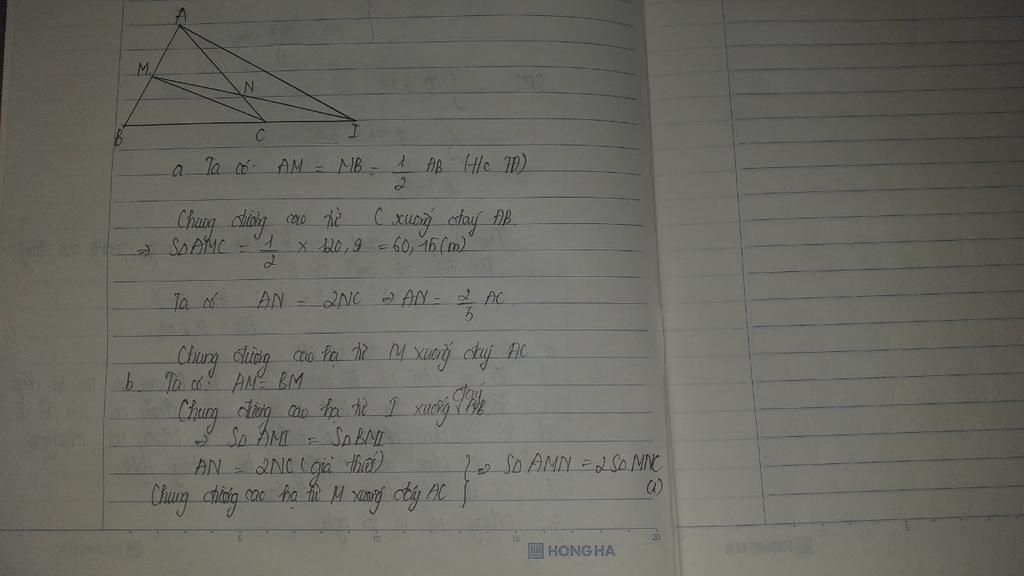 A
M
N
B
C
I
a. Ta có: AM = MB = 1/2 AB (H/c TĐ)
Chung đường cao từ C xuống đáy AB.
⇒ SΔAMC = 1/2 × 120,9 = 60,45(m)
Ta có: AN = 2NC ⇒ AN = 2/3 AC
Chung đường cao hạ từ M xuống đáy AC
b. Ta có: AM = BM
Chung đường cao hạ từ I xuống đáy AB
⇒ SΔAMI = SΔBMI
AN = 2NC (giả thiết) } ⇒ SΔAMN = 2SΔMNC
Chung đường cao hạ từ M xuống đáy AC (1)
5 10 15 20
HONG HA
5